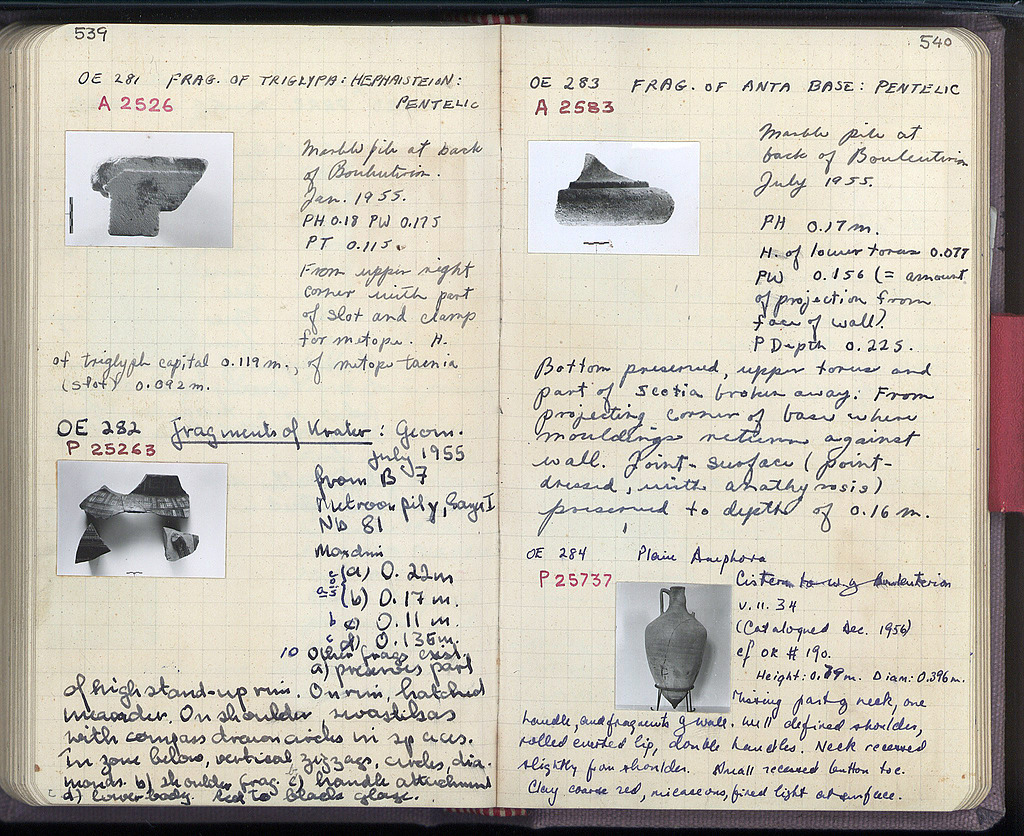 539
OE 281 FRAG. OF TRIGLYPH: HEPHAISTEION:
A 2526 PENTELIC
Marble pile at back
of Bouleuterion.
Jan. 1955.
PH 0.18 PW 0.175
PT 0.115.
From upper right
corner with part
of slot and clamp
for metope. H.
of triglyph capital 0.119 m., of metope taenia
(slot) 0.092 m.
OE 282 Fragments of Krater: Geom.
P 25263 July 1955
from B 7
Metroon
Nb 81
Max dim
(a) 0.22 m
(b) 0.17 m.
0.11 m.
d) 0.135 m.
10 Other frags exist.
a) preserves part
of high stand-up rim. On rim, hatched
meander. On shoulder, swastikas
with compass drawn circles in spaces.
In zone below, vertical zigzags, circles, dia-
monds. b) shoulder frag. c) handle attachment
d) lower body. Red to black glaze.
540
OE 283 FRAG. OF ANTA BASE: PENTELIC
A 2583
Marble pile at
back of Bouleuterion
July 1955.
PH 0.17 m.
H. of lower torus 0.077
PW 0.156 (= amount
of projection from
face of wall).
P Depth 0.225.
Bottom preserved, upper torus and
part of scotia broken away. From
projecting corner of base where
mouldings return against
wall. Joint-surface (point-
dressed, with anathyrosis)
preserved to depth of 0.16 m.
OE 284 Plain Amphora
P 25737 Cistern to w. of Bouleuterion
v. 11. 34
(Catalogued Dec. 1956)
cf OR # 190.
Height: 0.79 m. Diam: 0.396 m.
Missing part of neck, one
handle, and fragments of wall. Well defined shoulder,
rolled everted lip, double handles. Neck recessed
slightly from shoulder. Small recessed button toe.
Clay coarse red, micaceous, fired light at surface.